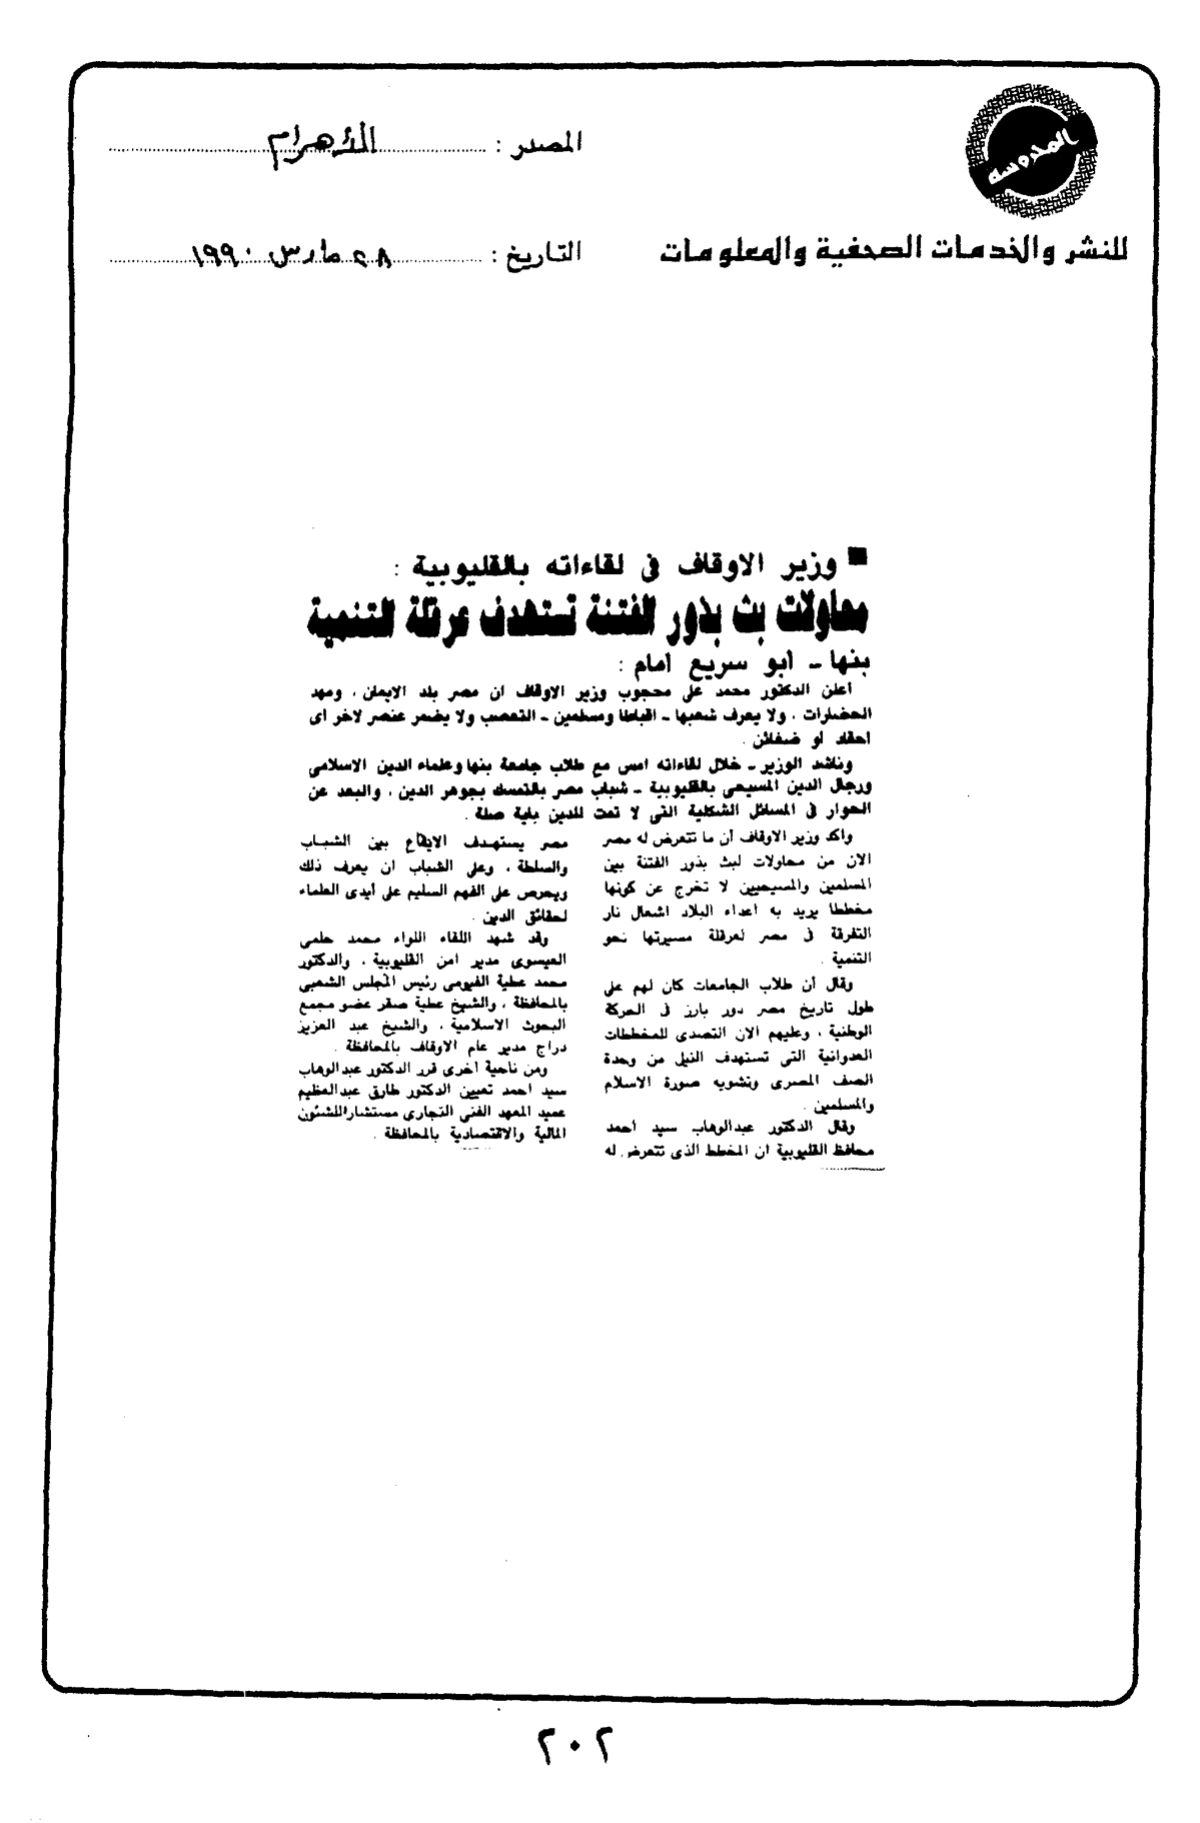 المحروسه
للنشر والخدمات الصحفية والمعلومات
المصدر : الأهرام
التاريخ : ٢٨ مارس ١٩٩٠
■ وزير الاوقاف فى لقاءاته بالقليوبية :
محاولات بث بذور الفتنة تستهدف عرقلة التنمية
بنها ـ أبو سريع امام :
أعلن الدكتور محمد على محجوب وزير الاوقاف ان مصر بلد الايمان ، ومهد
الحضارات ، ولا يعرف شعبها ـ اقباطا ومسلمين ـ التعصب ولا يضمر عنصر لاخر اى
احقاد او ضغائن .
وناشد الوزير ـ خلال لقاءاته امس مع طلاب جامعة بنها وعلماء الدين الاسلامى
ورجال الدين المسيحى بالقليوبية ـ شباب مصر بالتمسك بجوهر الدين ، والبعد عن
الحوار فى المسائل الشكلية التى لا تمت للدين باية صلة .
واكد وزير الاوقاف أن ما تتعرض له مصر
الان من محاولات لبث بذور الفتنة بين
المسلمين والمسيحيين لا تخرج عن كونها
مخططا يريد به اعداء البلاد اشعال نار
التفرقة فى مصر لعرقلة مسيرتها نحو
التنمية .
وقال أن طلاب الجامعات كان لهم على
طول تاريخ مصر دور بارز فى الحركة
الوطنية ، وعليهم الان التصدى للمخططات
العدوانية التى تستهدف النيل من وحدة
الصف المصرى وتشويه صورة الاسلام
والمسلمين .
وقال الدكتور عبدالوهاب سيد أحمد
محافظ القليوبية ان المخطط الذى تتعرض له
مصر يستهدف الايقاع بين الشباب
والسلطة ، وعلى الشباب ان يعرف ذلك
ويحرص على الفهم السليم على أيدى العلماء
لحقائق الدين .
وقد شهد اللقاء اللواء محمد حلمى
العيسوى مدير امن القليوبية ، والدكتور
محمد عطية الفيومى رئيس المجلس الشعبى
بالمحافظة ، والشيخ عطية صقر عضو مجمع
البحوث الاسلامية ، والشيخ عبد العزيز
دراج مدير عام الاوقاف بالمحافظة .
ومن ناحية اخرى قرر الدكتور عبدالوهاب
سيد احمد تعيين الدكتور طارق عبدالعظيم
عميد المعهد الفنى التجارى مستشارا للشئون
المالية والاقتصادية بالمحافظة .
٢٠٢